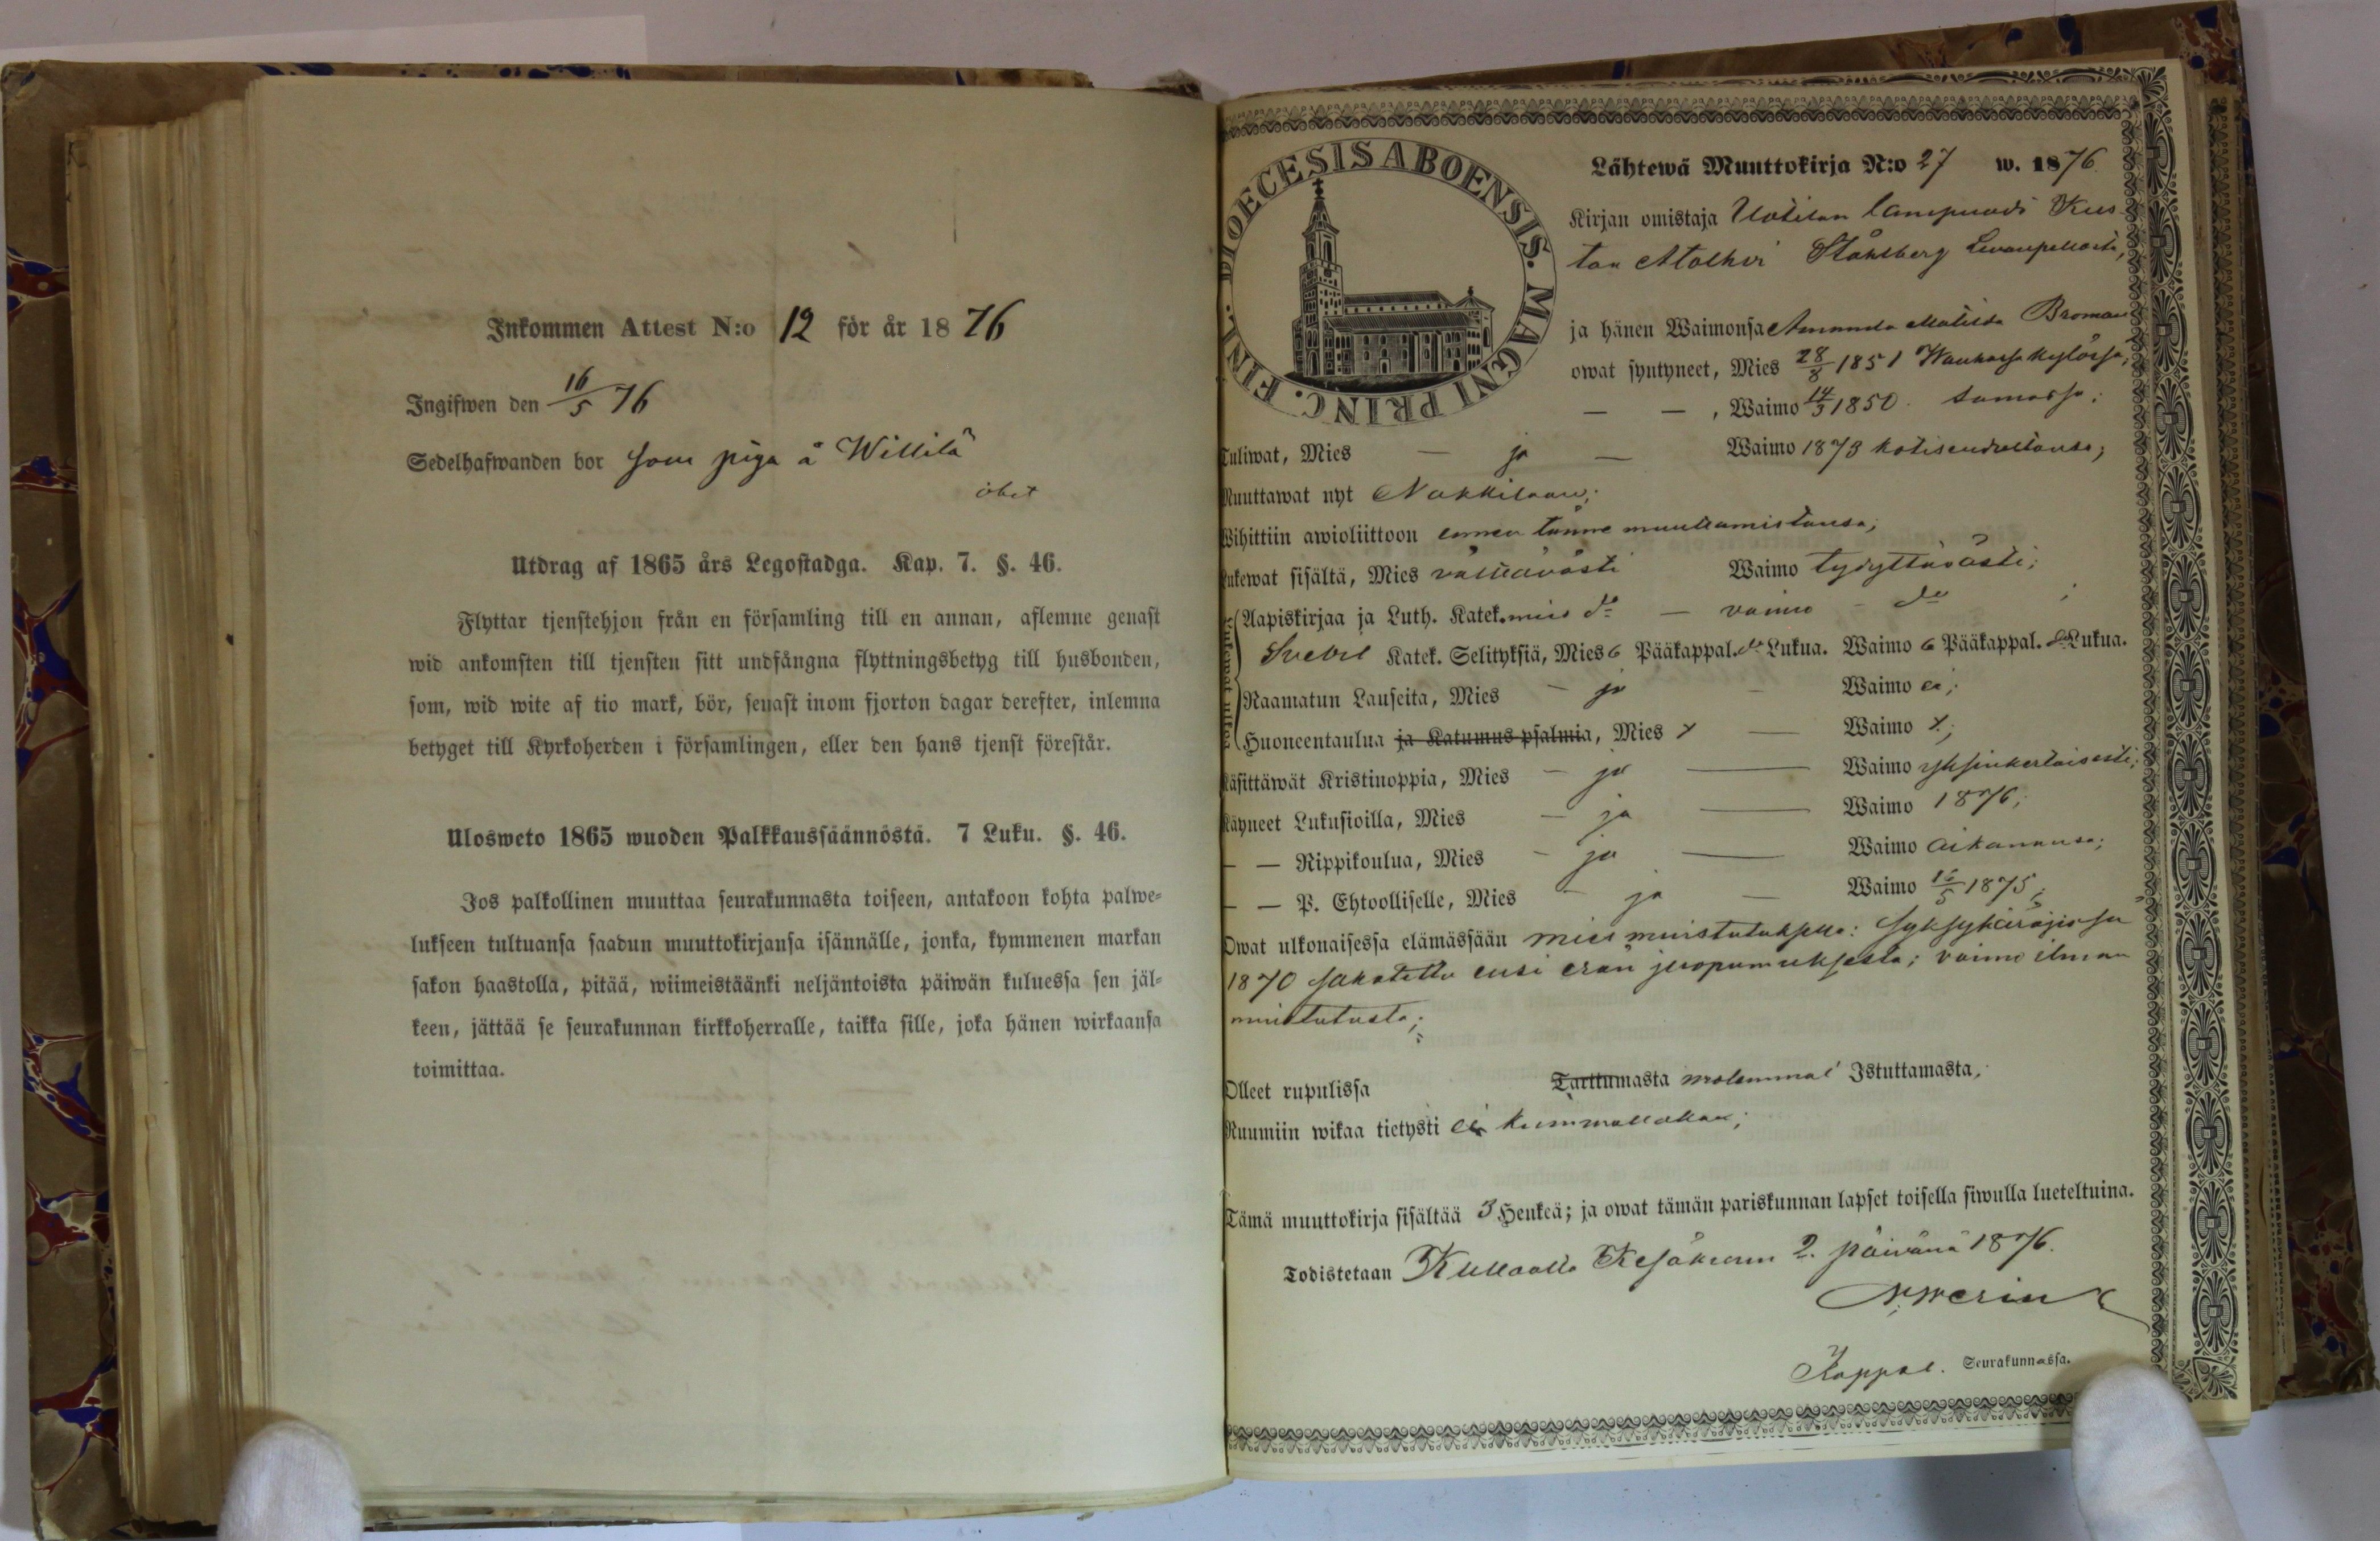 Inkommen Attest N:o 12 för år 1876
Ingifwen den 16/5 76
Sedelhafwanden bor som piga å Willilä
Utdrag af 1865 års Legostadga. Kap. 7. §. 46.
Flyttar tjenstehjon från en församling till en annan, aflemne genast
wid ankomsten till tjensten sitt undfångna flyttningsbetyg till husbonden,
som, wid wite af tio mark, bör, senast inom fjorton dagar derefter, inlemna
betyget till Kyrkoherden i församlingen, eller den hans tjenst förestår.
Ulosweto 1865 wuoden Palkkaussäännöstä. 7 Luku. §. 46.
Jos palkollinen muuttaa seurakunnasta toiseen, antakoon kohta palwe-
lukseen tultuansa saadun muuttokirjansa isännälle, jonka, kymmenen markan
sakon haastolla, pitää, wiimeistäänki neljäntoista päiwän kuluessa sen jäl-
keen, jättää se seurakunnan kirkkoherralle, taikka sille, joka hänen wirkaansa
toimittaa.
DIOECESIS ABOENSIS. MAGNI PRINC. FINL.
Lähtewä Muuttokirja N:o 27 w. 1876.
Kirjan omistaja Uotilan lampuodi Kus-
taa Ståhlberg
ja hänen Waimonsa Amanda Matilda Broman
owat syntyneet, Mies 28/8 1851
— — , Waimo 14/3 1850. samassa;
Tuliwat, Mies — ja — Waimo 1873
Muuttawat nyt Nakkilaan;
Wihittiin awioliittoon ennen tänne muuttamistansa;
Lukewat sisältä, Mies välttävästi Waimo tydyttävästi;
Aapiskirjaa ja Luth. Katek. mies do — vaimo — do ;
Svebil Katek. Selityksiä, Mies 6 Pääkappal. do Lukua. Waimo 6 Pääkappal. do Lukua.
Raamatun Lauseita, Mies — ja — Waimo ei;
Huoneentaulua ja Katumus-psalmia, Mies x — Waimo x;
Käsittäwät Kristinoppia, Mies — ja — Waimo yksinkertaisesti;
Käyneet Lukusioilla, Mies — ja — Waimo 1876;
— — Rippikoulua, Mies — ja — Waimo aikanansa;
— — P. Ehtoolliselle, Mies — ja — Waimo 16/5 1875;
Owat ulkonaisessa elämässään mies muistutuksella: syksykäräjissä
1870 sakotettu ensi erän juopumuksesta; vaimo ilman
muistutusta;
Olleet rupulissa Tarttumasta molemmat Istuttamasta,
Ruumiin wikaa tietysti ei kummallakaan;
Tämä muuttokirja sisältää 3 Henkeä; ja owat tämän pariskunnan lapset toisella siwulla lueteltuina.
Todistetaan Kullaalla Kesäkuun 2. päivänä 1876.
Kappal. Seurakunnassa.